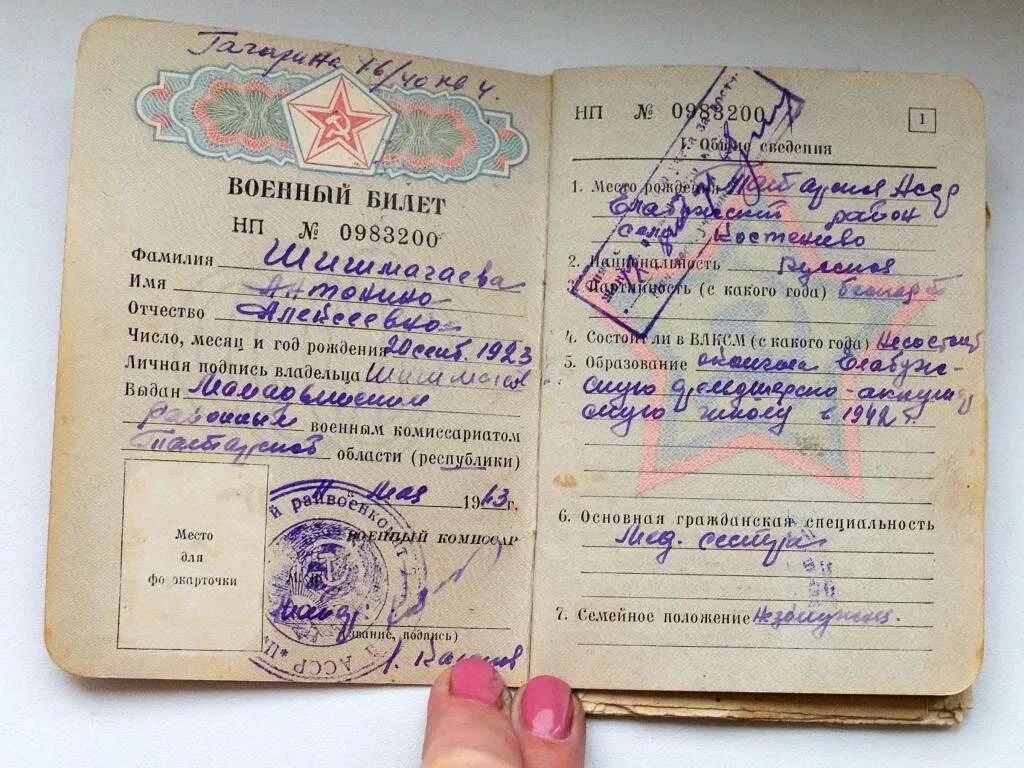 Гагарина 16/40 кв 4.
ВОЕННЫЙ БИЛЕТ
НП № 0983200
Фамилия Шишмагаева
Имя Антонина
Отчество Алексеевна
Число, месяц и год рождения 20 сент. 1923
Личная подпись владельца
Выдан Мамадышским
районным военным комиссариатом
Татарской области (республики)
11 мая 1963 г.
ВОЕННЫЙ КОМИССАР
Место
для
фотокарточки
(звание, подпись)
НП № 0983200
1
I. Общие сведения
1. Место рождения Татарская АССР
Елабужский район
село Костенеево
2. Национальность Русская
3. Партийность (с какого года) беспарт
4. Состоял ли в ВЛКСМ (с какого года) Несостоящ
5. Образование окончила Елабуж-
скую фельдшерско-акушер
скую школу в 1942 г.
6. Основная гражданская специальность
Мед. сестра
7. Семейное положение Незамужняя.